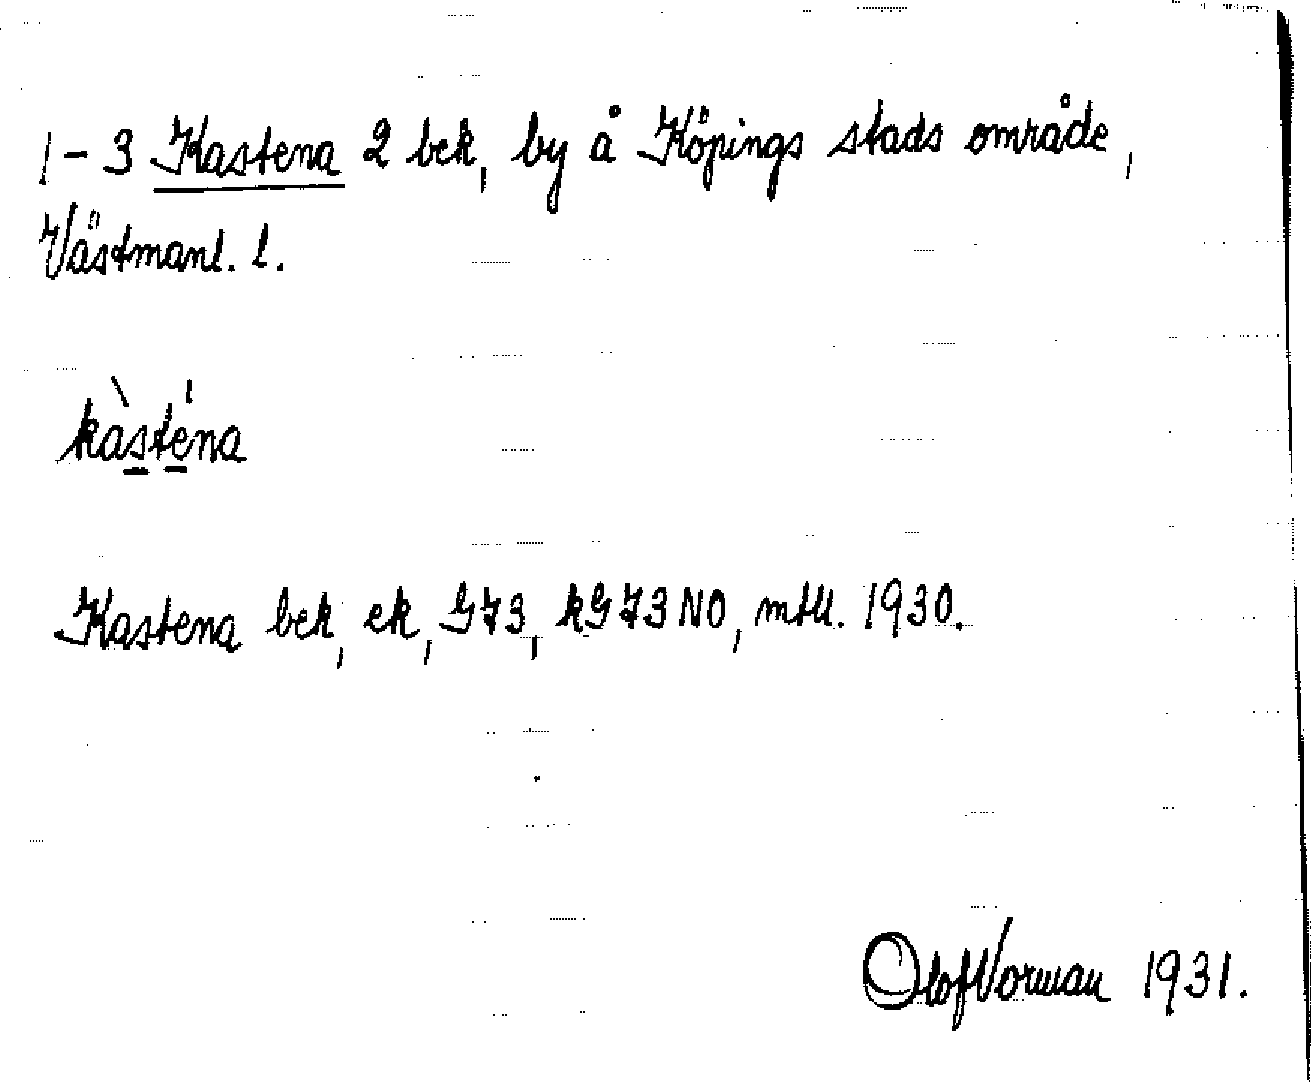 1-3 Kastena 2 bek, by å Köpings stads område,
Västmanl. l.
kàsténa
Kastena bek, ek, G73, kG73NO, mtll. 1930.
Olof Vorman 1931.